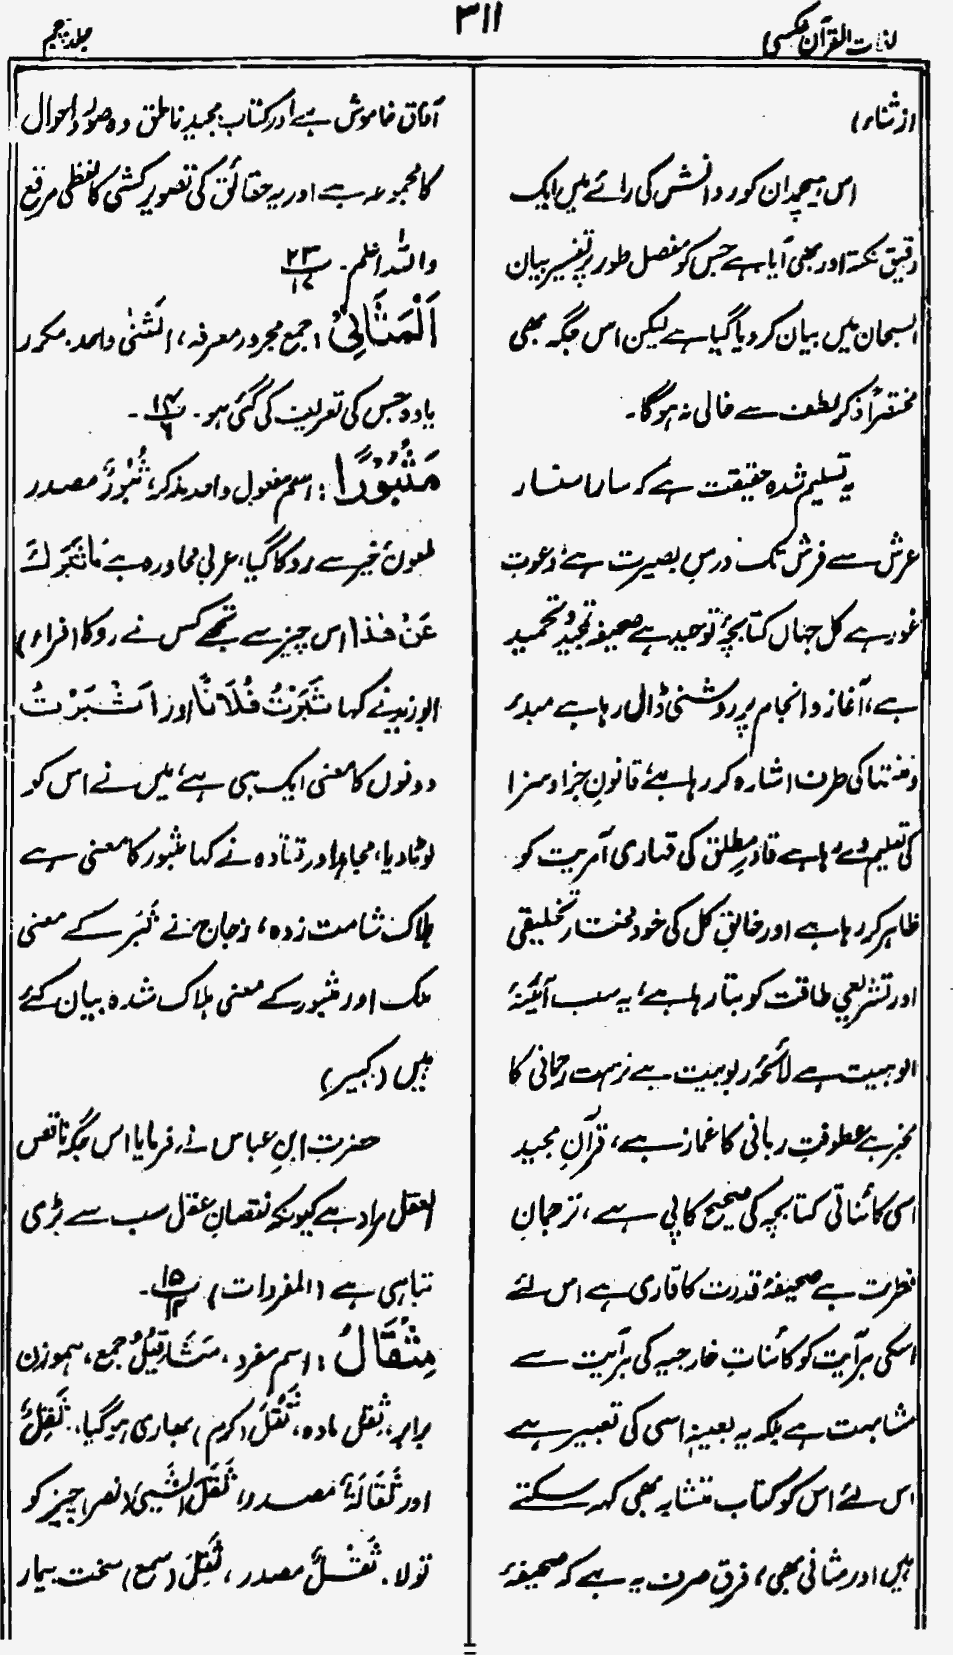 لغات القرآن عکسی
۳۱۱
جلد پنجم
از ثناء)
اس ہیچمدان کو رد دانش کی رائے میں ایک
دقیق نکتہ اور بھی آیا ہے جس کو مفصل طور پر تفسیر بیان
السبحان میں بیان کر دیا گیا ہے لیکن اس جگہ بھی
مختصراً ذکر لطف سے خالی نہ ہوگا۔
یہ تسلیم شدہ حقیقت ہے کہ سارا سنسار
عرش سے فرش تک درسِ بصیرت ہے، دعوتِ
غور ہے کل جہاں کتابچۂ توحید ہے صحیفہ تمجید و تحمید
ہے، آغاز و انجام پر روشنی ڈال رہا ہے مبدء
و منتہا کی طرف اشارہ کر رہا ہے، قانونِ جزا و سزا
کی تعلیم دے رہا ہے قادرِ مطلق کی قہاری آمریت کو
ظاہر کر رہا ہے اور خالقِ کل کی خود مختار تخلیقی
اور تشریعی طاقت کو بتا رہا ہے، یہ سب آئینۂ
الوہیت ہے لائحۂ ربوبیت ہے نزہت رحمانی کا
مخبر ہے عطوفتِ ربانی کا غماز ہے، قرآنِ مجید
اسی کائناتی کتابچہ کی صحیح کاپی ہے، ترجمان
فطرت ہے صحیفۂ قدرت کا قاری ہے اس لئے
اسکی ہر آیت کو کائناتِ خارجیہ کی ہر آیت سے
مشابہت ہے بلکہ یہ بعینہٖ اسی کی تعبیر ہے
اس لئے اس کو کتاب متشابہ بھی کہہ سکتے
ہیں اور مثانی بھی، فرق صرف یہ ہے کہ صحیفۂ
آفاق خاموش ہے اور کتاب مجید ناطق وہ صور و احوال
کا مجموعہ ہے اور یہ حقائق کی تصویر کشی کا لفظی مرقع
واللہ اعلم۔ ۲۳/۱۷
اَلْمَثَانِیْ: جمع مجرور معرفہ، المثنٰی واحد۔ مکرر
یا وہ جس کی تعریف کی گئی ہو۔ ۱۴/۶۔
مَثْبُوْرًا: اسم مفعول واحد مذکر، ثُبُوْرٌ مصدر
ملعون، خیر سے روکا گیا، عربی محاورہ ہے مَا ثَبَرَكَ
عَنْ هٰذَا اس چیز سے تجھے کس نے روکا (فراء)
ابوزید نے کہا ثَبَرْتُ فُلَانًا اور اَثْبَرْتُ
دونوں کا معنی ایک ہی ہے، میں نے اس کو
لوٹا دیا، مجاہد اور قتادہ نے کہا مثبور کا معنی ہے
ہلاک شامت زدہ، زجاج نے ثبر کے معنی
ہلک اور مثبور کے معنی ہلاک شدہ بیان کئے
ہیں (کبیر)
حضرت ابنِ عباس نے فرمایا اس جگہ ناقص
العقل مراد ہے کیونکہ نقصانِ عقل سب سے بڑی
تباہی ہے (المفردات) ۱۵/۱۲۔
مِثْقَالُ: اسم مفرد، مَثَاقِیْلُ جمع، ہموزن
برابر، ثِقل مادہ، ثَقُلَ (کرم) بھاری ہوگیا، ثِقَلٌ
اور ثَقَالَةٌ مصدر، ثَقَلَ الشَّیْئَ (نصر) چیز کو
تولا۔ ثَقْلٌ مصدر، ثَقِلَ (سمع) سخت بیمار